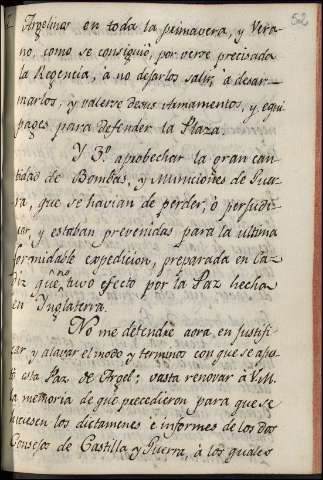 52
Argelinos en toda la primavera, y Vera-
no, como se consiguiò, por verse precisada
la Regencia, à no dejarlos salir, à desar-
marlos, y valerse de sus Armamentos, y equi
pages para defender la Plaza.
Y 3.º aprobechar la gran can-
tidad de Bombas, y Municiones de Guer-
ra, que se havian de perder, ò perjudi-
car, y estaban prevenidas para la ultima
formidable expedicion, preparada en Ca-
diz q̃ẽ no tuvo efecto por la Paz hecha
en Ynglaterra.
No me detendrè aora en justifi-
car, y alavar el modo y terminos con que se ajus-
tò esta Paz de Argel; vasta renovar à V.M.
la memoria de que precedieron para que se
hiciesen los dictamenes è informes de los dos
Consejos de Castilla y Guerra, à los quales